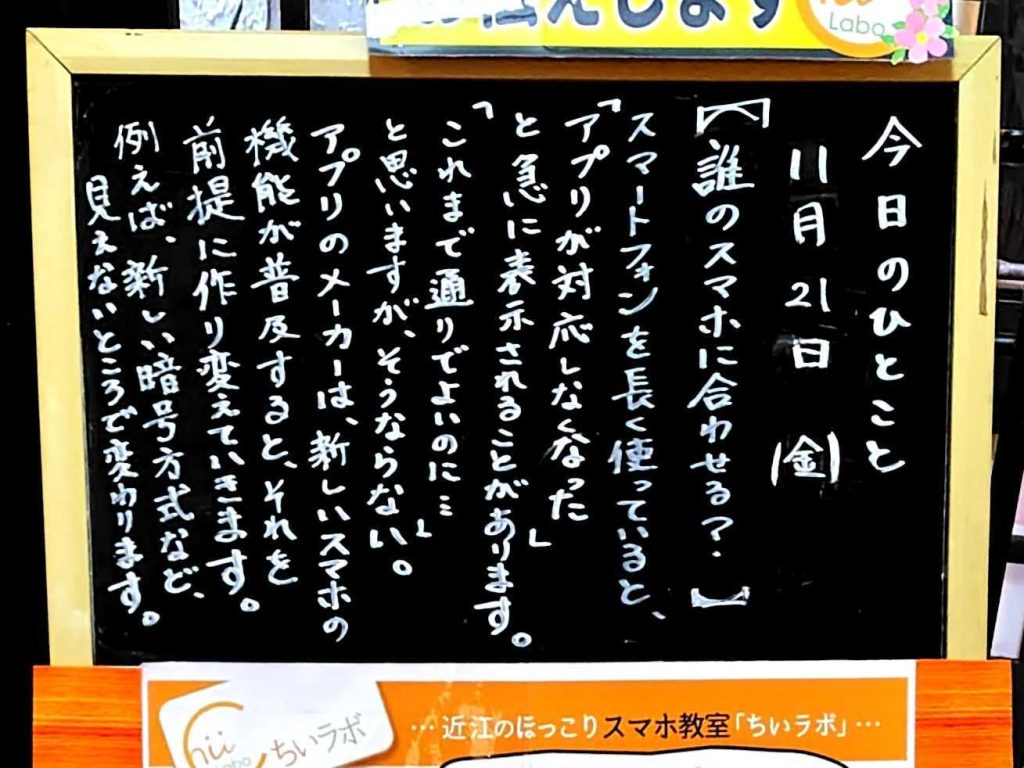 お伝えします
Labo
今日のひとこと
11月21日(金)
【誰のスマホに合わせる?】
スマートフォンを長く使っていると、
「アプリが対応しなくなった」
と急に表示されることがあります。
「これまで通りでよいのに…」
と思いますが、そうならない。
アプリのメーカーは、新しいスマホの
機能が普及すると、それを
前提に作り変えていきます。
例えば、新しい暗号方式など、
見えないところで変わります。
…近江のほっこりスマホ教室「ちいラボ」…
Chii
Labo
ちいラボ